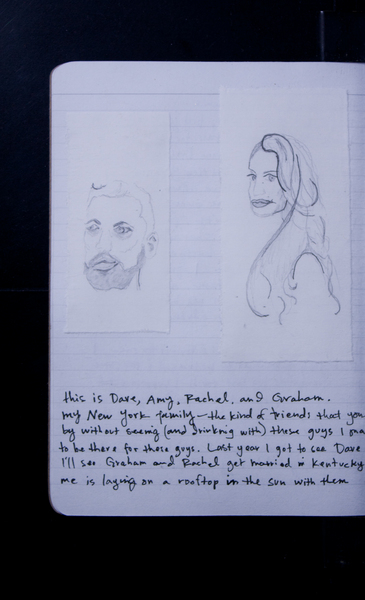 this is Dave, Amy, Rachel, and Graham.
my New York family - the kind of friends that you
by without seeing (and drinking with) these guys I
to be there for these guys. Last year I got to see Dave
I'll see Graham and Rachel get married in Kentucky
me is laying on a rooftop in the sun with them